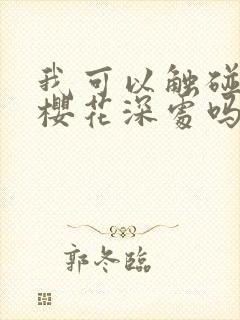 我可以触碰
樱花深处吗
郭冬臨